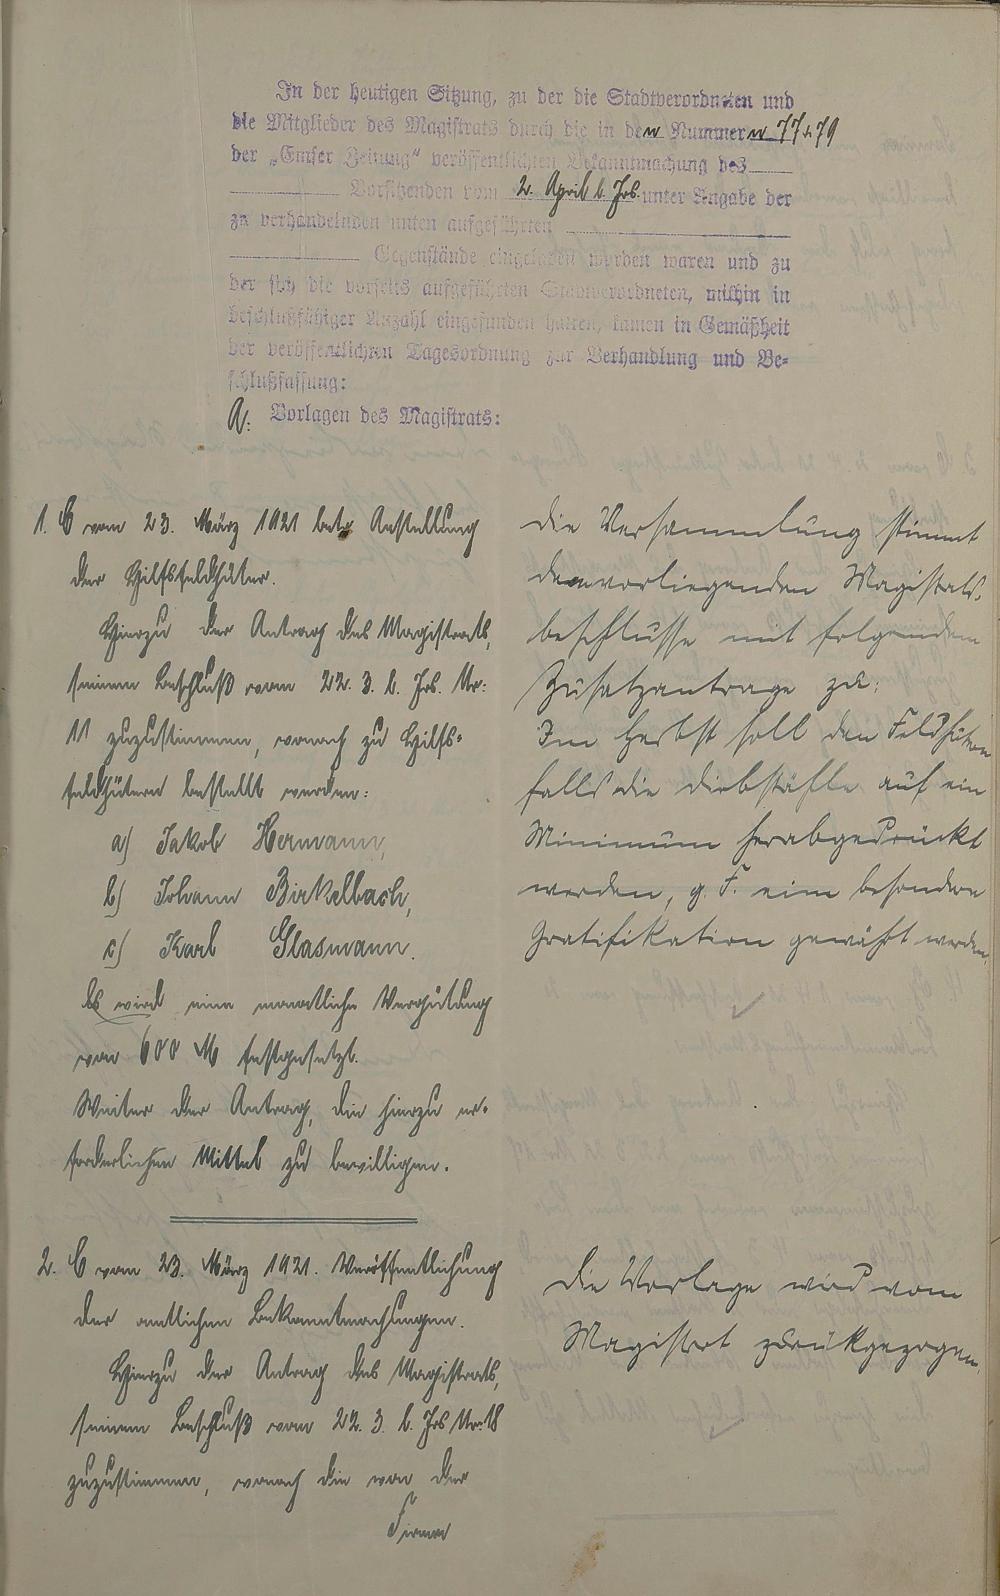 In der heutigen Sitzung, zu der die Stadtverordneten und
die Mitglieder des Magistrats durch die in den Nummern 77 & 79
der „Emser Zeitung“ veröffentlichten Bekanntmachung des
Vorsitzenden vom 2. April l. Jrs. unter Angabe der
zu verhandelnden unten aufgeführten
Gegenstände eingeladen worden waren und zu
der sich die vorseits aufgeführten Stadtverordneten, mithin in
beschlußfähiger Anzahl eingefunden hatten, kamen in Gemäßheit
der veröffentlichten Tagesordnung zur Verhandlung und Be-
schlußfassung:
A. Vorlagen des Magistrats:
1. C vom 23. März 1921 betr. Anstellung
der Hilfsfeldhüter.
Hierzu der Antrag des Magistrats,
seinem Beschluß vom 22. 3. l. Jrs. Nr:
11 zuzustimmen, wonach zu Hilfs-
feldhütern bestellt werden:
a) Jakob Hermann,
b) Johann Birkelbach,
c) Karl Glasmann.
Es wird eine monatliche Vergütung
von 600 M festgesetzt.
Weiter der Antrag, die hierzu er-
forderlichen Mittel zu bewilligen.
Die Versammlung stimmt
dem vorliegenden Magistrats-
beschlusse mit folgendem
Zusatzantrage zu:
Im Herbst soll den Feldhütern
falls die Diebstähle auf ein
Minimum herabgedrückt
werden, g. F. eine besondere
Gratifikation gewährt werden.
2. C vom 23. März 1921. Veröffentlichung
der amtlichen Bekanntmachungen.
Hierzu der Antrag des Magistrats,
seinem Beschluß vom 22. 3. l. Jrs Nr: 18
zuzustimmen, wonach die von der
Firma
Die Vorlage wird vom
Magistrat zurückgezogen.